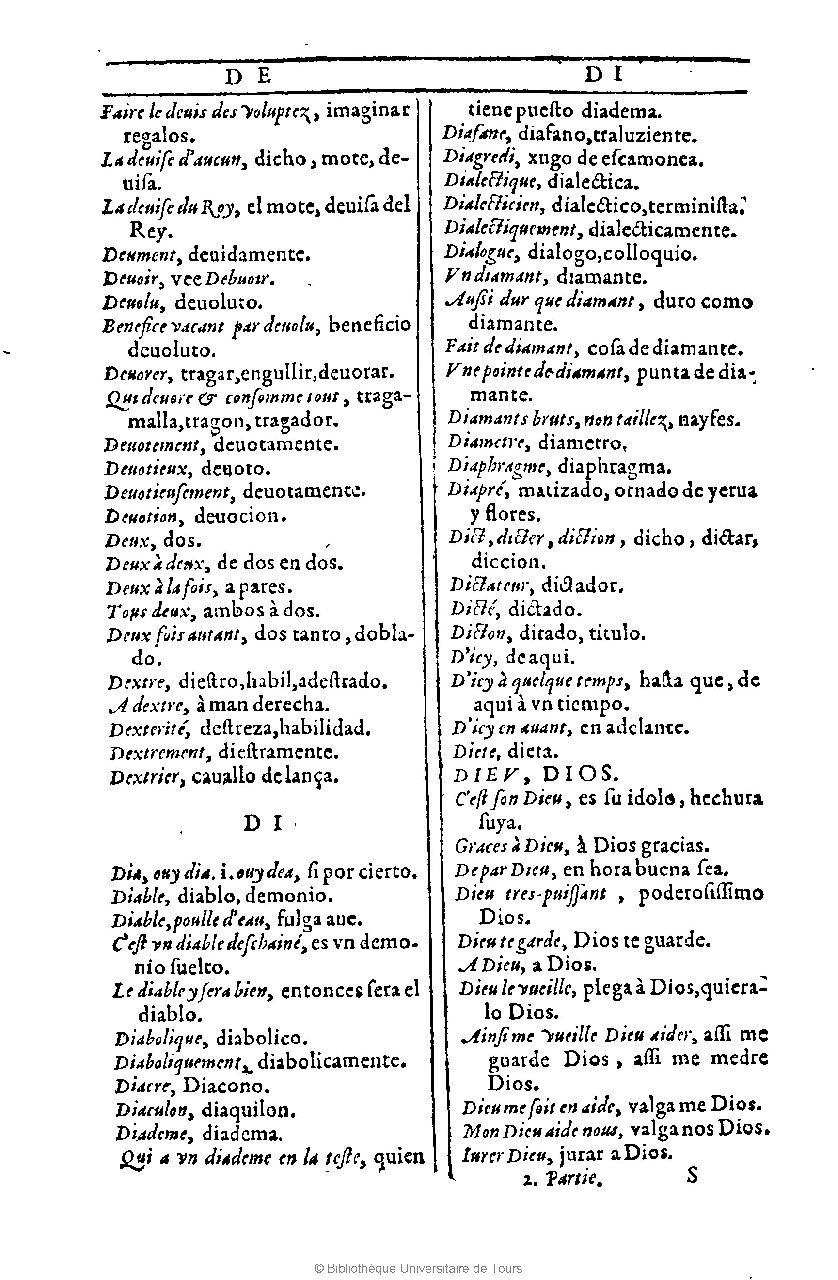 D E
D I
Faire le deuis des Voluptez, imaginar
regalos.
La deuiſe d'aucun, dicho, mote, de-
uiſa.
La deuiſe du Roy, el mote, deuiſa del
Rey.
Deument, deuidamente.
Deuoir, vee Debuoir.
Deuolu, deuoluto.
Benefice vacant par deuolu, beneficio
deuoluto.
Deuorer, tragar,engullir,deuorar.
Qui deuore & conſomme tout, traga-
malla,tragon,tragador.
Deuotement, deuotamente.
Deuotieux, deuoto.
Deuotieuſement, deuotamente.
Deuotion, deuocion.
Deux, dos.
Deux à deux, de dos en dos.
Deux à la fois, a pares.
Tous deux, ambos à dos.
Deux fois autant, dos tanto, dobla-
do.
Dextre, dieſtro,habil,adeſtrado.
A dextre, à man derecha.
Dexterité, deſtreza,habilidad.
Dextrement, dieſtramente.
Dextrier, cauallo de lança.
D I
Dia, ouy dia. i. ouy dea, ſi por cierto.
Diable, diablo, demonio.
Diable, poulle d'eau, fulga aue.
C'eſt vn diable deſchainé, es vn demo-
nio ſuelto.
Le diable y ſera bien, entonces ſera el
diablo.
Diabolique, diabolico.
Diaboliquement, diabolicamente.
Diacre, Diacono.
Diaculon, diaquilon.
Diademe, diadema.
Qui a vn diademe en la teſte, quien
tiene pueſto diadema.
Diafane, diafano,traluziente.
Diagredi, xugo de eſcamonea.
Dialectique, dialectica.
Dialecticien, dialectico,terminiſta.
Dialectiquement, dialecticamente.
Dialogue, dialogo,colloquio.
Vn diamant, diamante.
Auſsi dur que diamant, duro como
diamante.
Fait de diamant, coſa de diamante.
Vne pointe de diamant, punta de dia-
mante.
Diamants bruts, non taillez, nayfes.
Diametre, diametro,
Diaphragme, diaphragma.
Diapré, matizado, ornado de yerua
y flores.
Dict, dicter, diction, dicho, dictar,
diccion.
Dictateur, dictador.
Dicté, dictado.
Dicton, ditado, titulo.
D'icy, de aqui.
D'icy à quelque temps, haſta que, de
aqui à vn tiempo.
D'icy en auant, en adelante.
Diete, dieta.
DIEV, DIOS.
C'eſt ſon Dieu, es ſu idolo, hechura
ſuya.
Graces à Dieu, à Dios gracias.
De par Dieu, en hora buena ſea.
Dieu tres-puiſſant, poderoſiſſimo
Dios.
Dieu te garde, Dios te guarde.
A Dieu, a Dios.
Dieu le vueille, plega à Dios,quiera-
lo Dios.
Ainſi me vueille Dieu aider, aſſi me
guarde Dios, aſſi me medre
Dios.
Dieu me ſoit en aide, valga me Dios.
Mon Dieu aide nous, valga nos Dios.
Iurer Dieu, jurar a Dios.
2. Partie. S
© Bibliothèque Universitaire de Tours